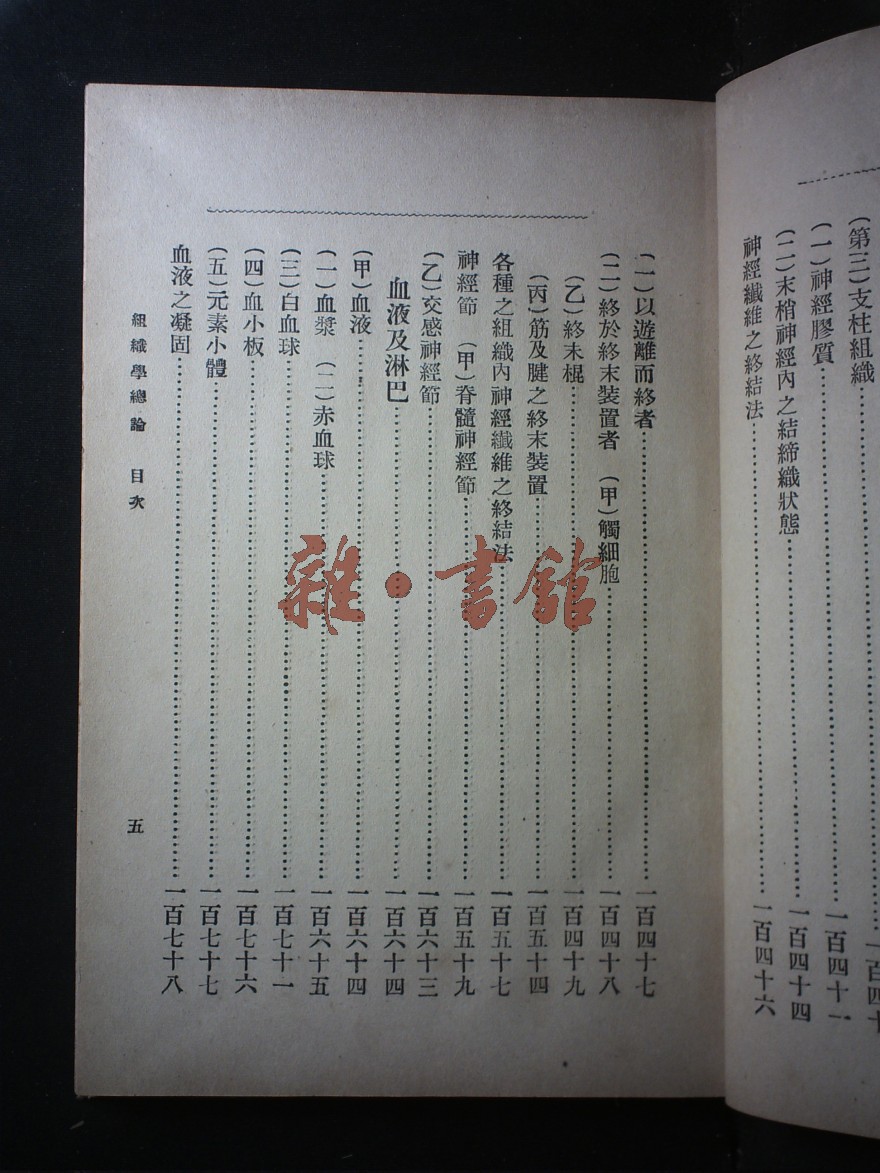 (第三)支柱組織……一百四十
(一)神經膠質……一百四十一
(二)末梢神經內之結締織狀態……一百四十四
神經纖維之終結法……一百四十六
(一)以遊離而終者……一百四十七
(二)終於終末裝置者 (甲)觸細胞……一百四十八
(乙)終末棍……一百四十九
(丙)筋及腱之終末裝置……一百五十四
各種之組織內神經纖維之終結法……一百五十七
神經節 (甲)脊髓神經節……一百五十九
(乙)交感神經節……一百六十三
血液及淋巴……一百六十四
(甲)血液……一百六十四
(一)血漿 (二)赤血球……一百六十五
(三)白血球……一百七十一
(四)血小板……一百七十六
(五)元素小體……一百七十七
血液之凝固……一百七十八
組織學總論 目次 五
雜·書館